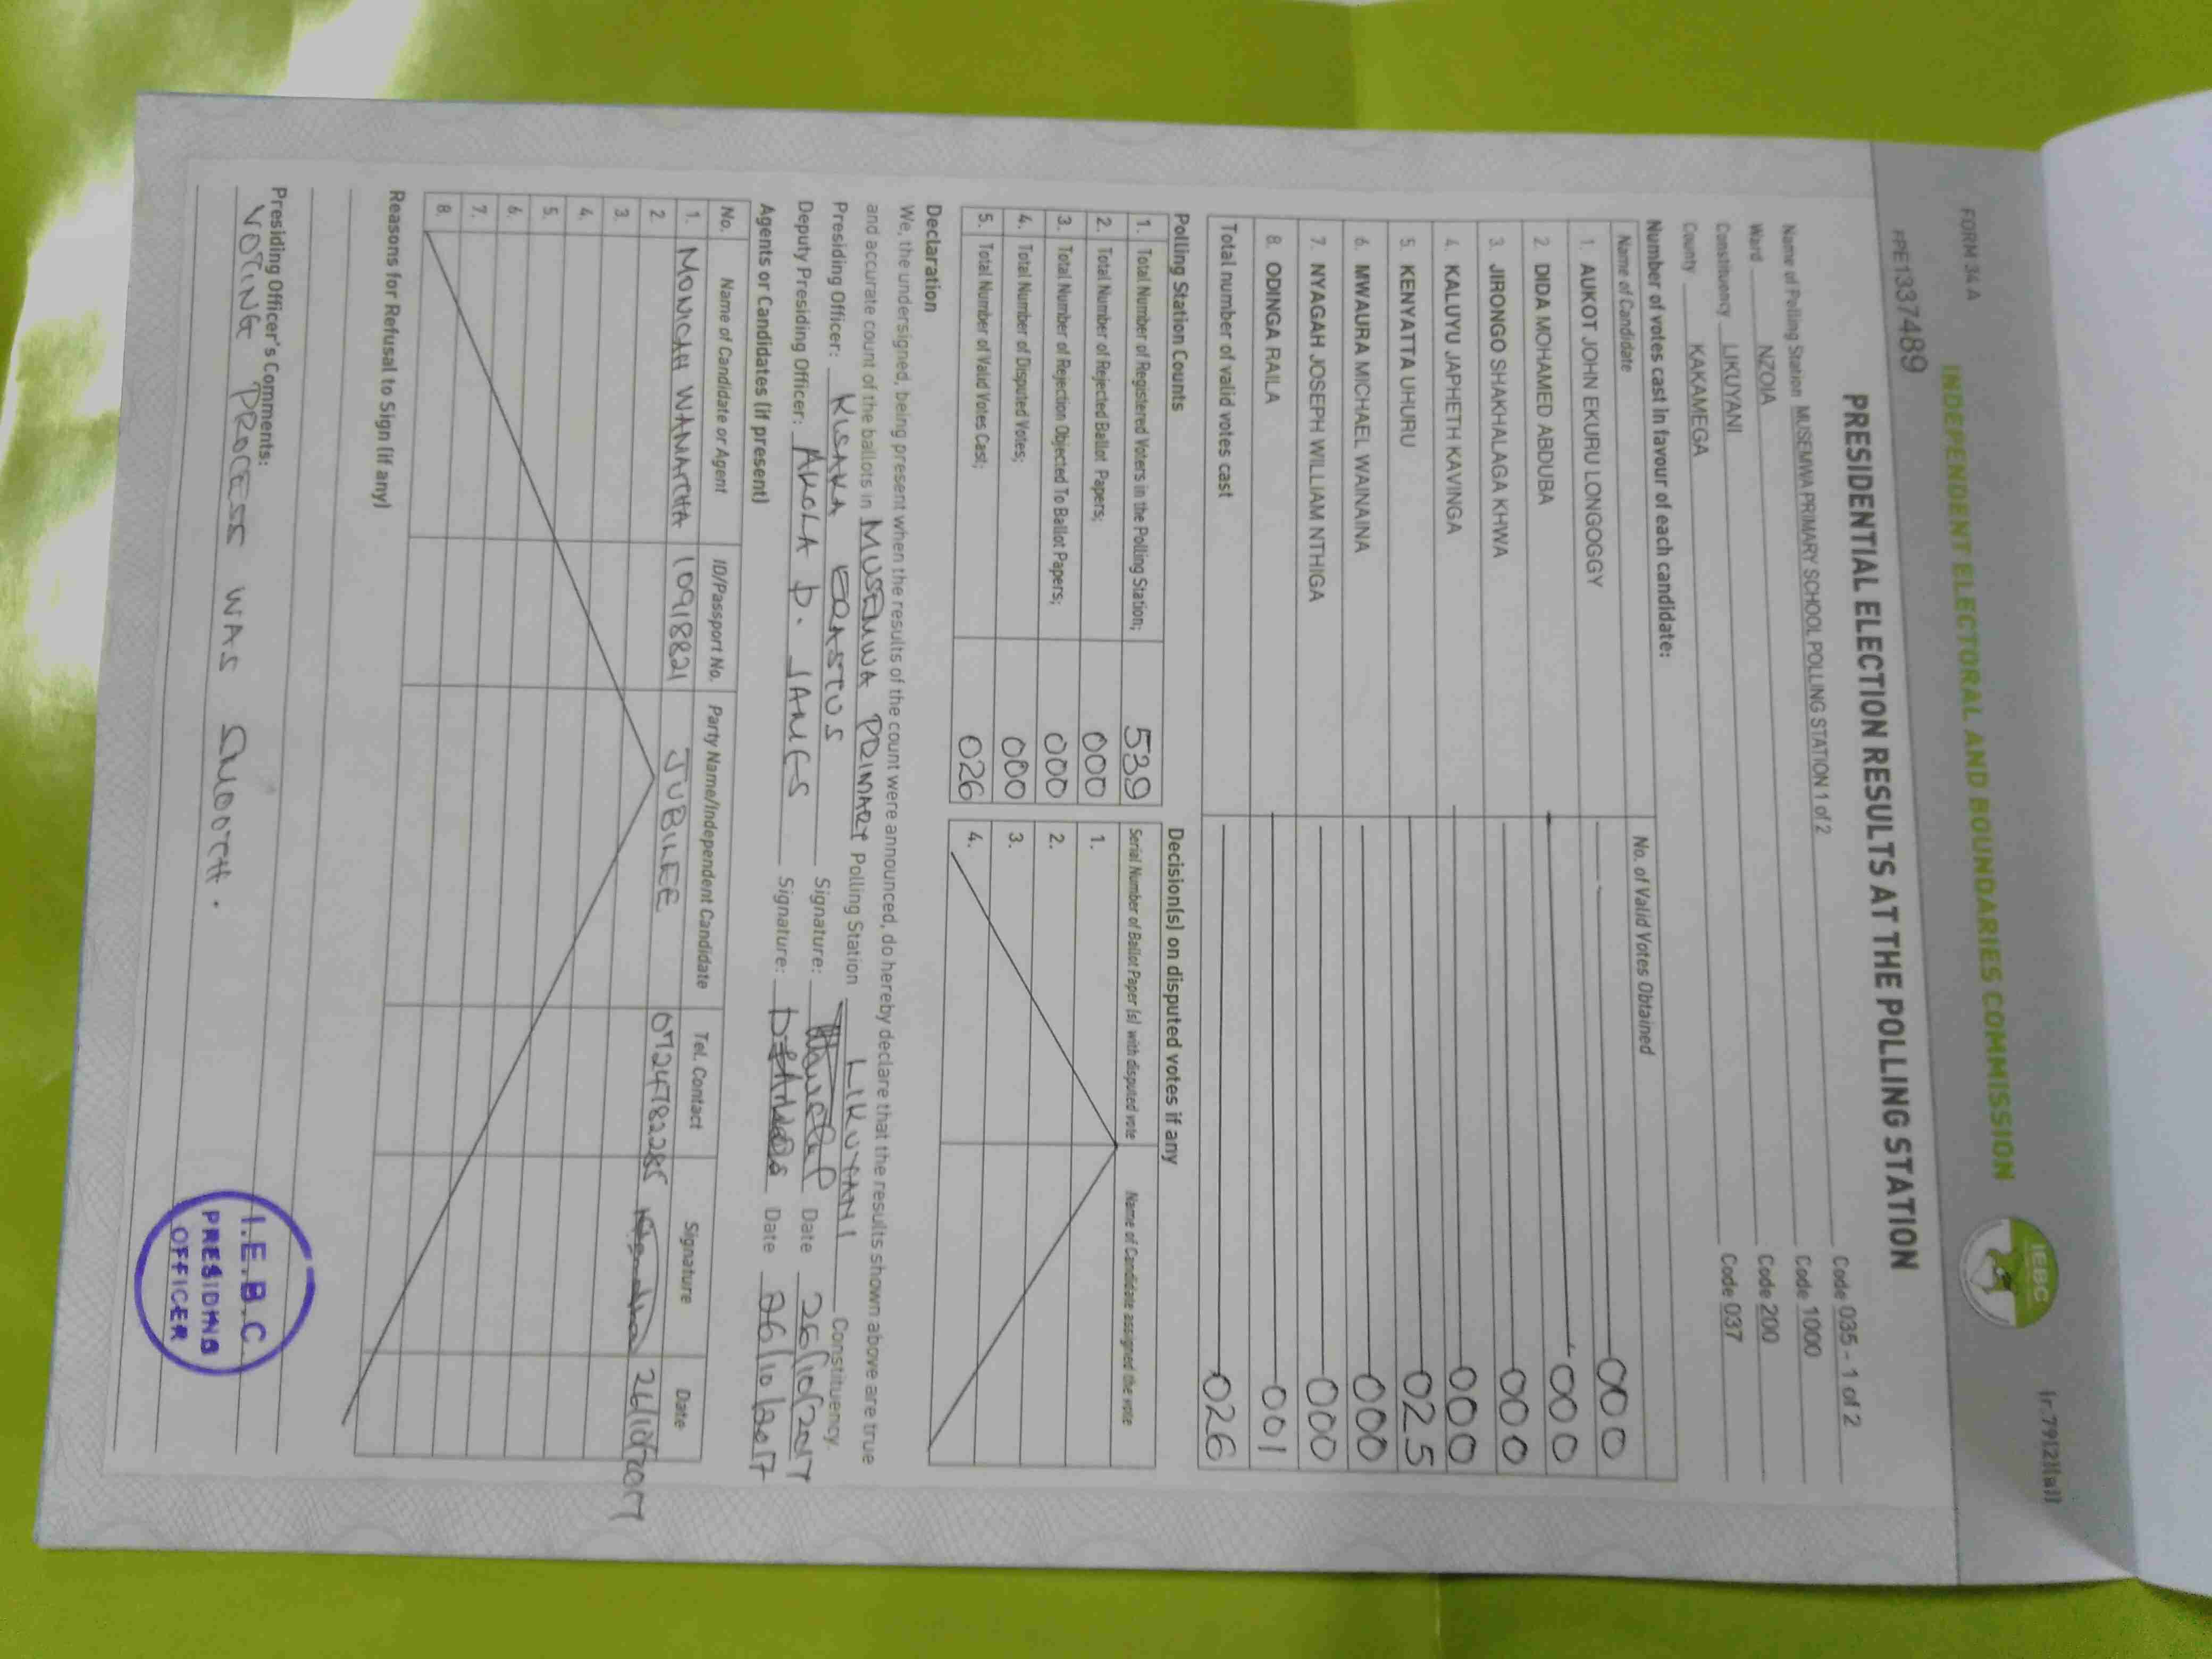 (r.79(2)(a))
FORM 34 A
INDEPENDENT ELECTORAL AND BOUNDARIES COMMISSION
IEBC
PPE1337489
PRESIDENTIAL ELECTION RESULTS AT THE POLLING STATION
Name of Polling Station MUSEMWA PRIMARY SCHOOL POLLING STATION 1 of 2 Code 035 - 1 of 2
Ward NZOIA Code 1000
Constituency LIKUYANI Code 200
County KAKAMEGA Code 037
Number of votes cast in favour of each candidate:
Name of Candidate No. of Valid Votes Obtained
1. AUKOT JOHN EKURU LONGOGGY 000
2. DIDA MOHAMED ABDUBA 000
3. JIRONGO SHAKHALAGA KHWA 000
4. KALUYU JAPHETH KAVINGA 000
5. KENYATTA UHURU 025
6. MWAURA MICHAEL WAINAINA 000
7. NYAGAH JOSEPH WILLIAM NTHIGA 000
8. ODINGA RAILA 001
Total number of valid votes cast 026
Polling Station Counts Decision(s) on disputed votes if any
Serial Number of Ballot Paper (s) with disputed vote Name of Candidate assigned the vote
1. Total Number of Registered Voters in the Polling Station; 539 1.
2. Total Number of Rejected Ballot Papers; 000 2.
3. Total Number of Rejection Objected To Ballot Papers; 000 3.
4. Total Number of Disputed Votes; 000 4.
5. Total Number of Valid Votes Cast; 026
Declaration
We, the undersigned, being present when the results of the count were announced, do hereby declare that the results shown above are true
and accurate count of the ballots in MUSEMWA PRIMARY Polling Station LIKUYANI Constituency.
Presiding Officer: KISAKA ERASTUS Signature: Date 26/10/2017
Deputy Presiding Officer: AKOLA D. JAMES Signature: Date 26/10/2017
Agents or Candidates (if present)
No. Name of Candidate or Agent ID/Passport No. Party Name/Independent Candidate Tel. Contact Signature Date
1. MONICAH WANAITHA 10918821 JUBILEE 0724782285 26/10/2017
2.
3.
4.
5.
6.
7.
8.
Reasons for Refusal to Sign (if any)
Presiding Officer's Comments:
VOTING PROCESS WAS SMOOTH.
I.E.B.C.
PRESIDING
OFFICER